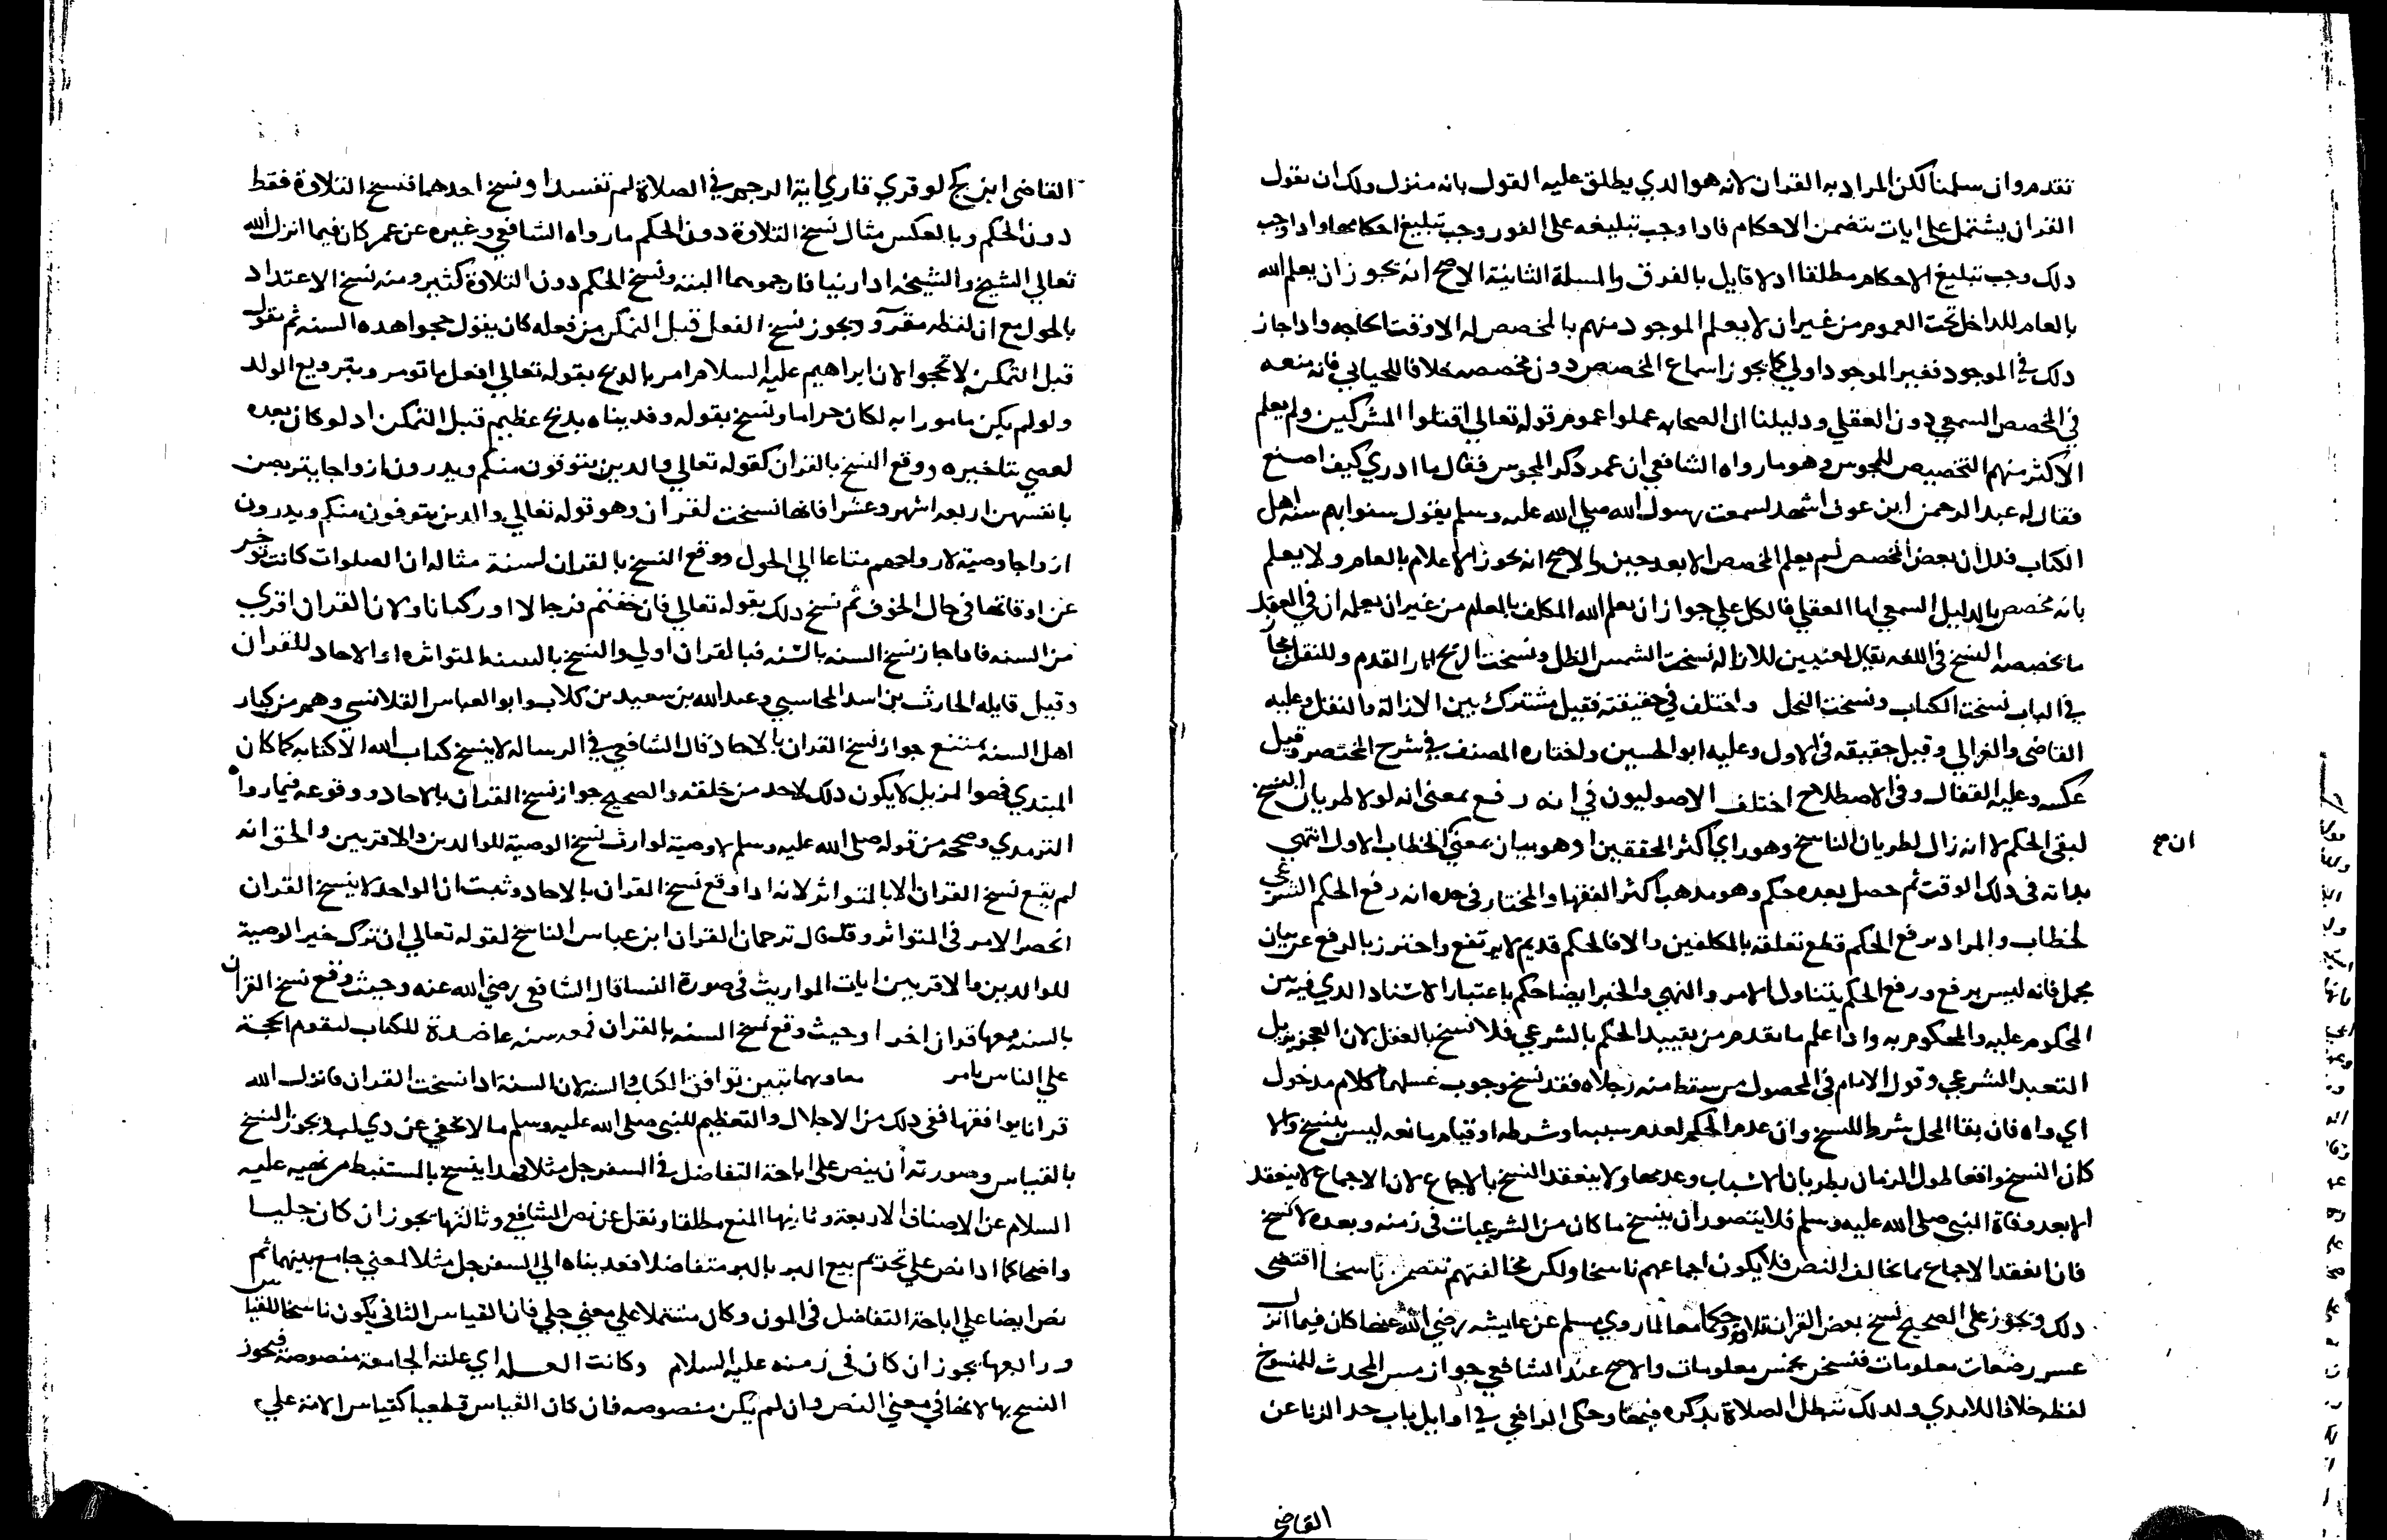 تقدم وان سلمنا لكن المراد به القران لانه هو الدي يطلق عليه القول بانه منزل ولك ان تقول
القران يشتمل على ايات تتضمن الاحكام فادا وجب تبليغه على الفور وجب تبليغ احكامها وادا وجب
دلك وجب تبليغ الاحكام مطلقا اد لا قايل بالفرق والمسلة الثانية الاصح انه يجوز ان يعلم الله
بالعام للداخل تحت العموم من غير ان لا يعلم الموجود منهم بالمخصص له الا وقت الحاجه وادا جاز
دلك في الموجود فغير الموجود اولي كما يجوز اسماع المخصص دون مخصصه خلافا للجبايي فانه منعه
في المخصص السمعي دون العقلي ودليلنا ان الصحابه عملوا عموم قوله تعالي اقتلوا المشركين ولم يعلم
الاكثر منهم التخصيص للمجوس وهو ما رواه الشافعي ان عمر دكر المجوس فقال ما ادري كيف اصنع
فقال له عبد الرحمن ابن عوف اشهد لسمعت رسول الله صلي الله عليه وسلم يقول سنوا بهم سنة اهل
الكتاب فدل ان بعض المخصص لم يعلم المخصص الا بعد حين والاصح انه يجوز الاعلام بالعام ولا يعلم
بانه مخصص بالدليل السمعي اما العقلي فالكل علي جواز ان يعلم الله المكلف بالعلم من غير ان يعلمه ان في العقل
ما يخصصه النسخ في اللغه يقال لمعنيين للازالة نسخت الشمس الظل ونسخت الريح اثار القدم وللنقل مجازا
في الباب نسخت الكتاب ونسخت النحل واختلف في حقيقته فقيل مشترك بين الازالة والنقل وعليه
القاضي والغزالي وقيل حقيقه في الاول وعليه ابو الحسين واختاره المصنف في شرح المختصر وقيل
عكسه وعليه القفال وفي الاصطلاح اختلف الاصوليون في انه رفع بمعنى انه لولا طريان النسخ
لبقي الحكم لا انه زال لطريان الناسخ وهو راي اكثر المحققين او هو بيان بمعني الخطاب الاول انتهي
ان صح
بداته في دلك الوقت ثم حصل بعده حكم وهو مدهب اكثر الفقها والمختار في حده انه رفع الحكم الشرعي
لخطاب والمراد برفع الحكم قطع تعلقه بالمكلفين والا فالحكم قديم لا يرتفع واحترز بالرفع عن بيان
مجمل فانه ليس برفع ورفع الحكم يتناول الامر والنهي والخبر ايضا حكم باعتبار الاسناد الدي فيه بين
المحكوم عليه والمحكوم به وادا علم ما تقدم من تقييد الحكم بالشرعي فلا نسخ بالعقل لان العجز يزيل
التعبد الشرعي وقول الامام في المحصول من سقط منه رجلاه فقد نسخ وجوب غسلهما كلام مدخول
اي واه فان بقا المحل شرط للنسخ وان عدم الحكم لعدم سببه او شرطه او قيام مانعه ليس بنسخ والا
كان النسخ واقعا طول الزمان بطريان الاسباب وعدمها ولا ينعقد النسخ بالاجماع لان الاجماع لا ينعقد
الا بعد وفاة النبي صلى الله عليه وسلم فلا يتصور ان ينسخ ما كان من الشرعيات في زمنه وبعده لا نسخ
فان انعقد الاجماع بما يخالف النص فلا يكون اجماعهم ناسخا ولكن مخالفتهم تتضمن ناسخا اقتضى
دلك ويجوز على الصحيح نسخ بعض القران تلاوة وحكما معا لما روي مسلم عن عايشه رضي الله عنها كان فيما انزل
عشر رضعات معلومات فنسخن بخمس معلومات والاصح عند الشافعي جواز مس المحدث للمنسوخ
لفظه خلافا للامدي ولدلك تبطل الصلاة بدكره فيها وحكى الرافعي في اوايل باب حد الزنا عن
القاضي
القاضي ابن كج لو قري قاري اية الرجم في الصلاة لم تفسد او نسخ احدهما فنسخ التلاوة فقط
دون الحكم وبالعكس مثال نسخ التلاوة دون الحكم ما رواه الشافعي وغيره عن عمر كان فيما انزل الله
تعالي الشيخ والشيخه ادا زنيا فارجموهما البته ونسخ الحكم دون التلاوة كثير ومنه نسخ الاعتداد
بالحول مع ان لفظه مقرو ويجوز نسخ الفعل قبل التمكن من فعله كان يقول حجوا هده السنه ثم يقول
قبل التمكن لا تحجوا لان ابراهيم عليه السلام امر بالدبح بقوله تعالي افعل ما تومر وبترويع الولد
ولو لم يكن مامورا به لكان حراما ونسخ بقوله وفديناه بدبح عظيم قبل التمكن اد لو كان بعده
لعصي بتاخيره ووقع النسخ بالقران كقوله تعالي والدين يتوفون منكم ويدرون ازواجا يتربصن
بانفسهن اربعه اشهر وعشرا فانها نسخت لقران وهو قوله تعالي والدين يتوفون منكم ويدرون
ازواجا وصية لازواجهم متاعا الي الحول ووقع النسخ بالقران لسنة مثاله ان الصلوات كانت توخر
عن اوقاتها في حال الخوف ثم نسخ دلك بقوله تعالي فان خفتم فرجالا او ركبانا ولان القران اقوي
من السنه فادا جاز نسخ السنه بالسنه فبالقران اولي والنسخ بالسنه المتواتره او الاحاد للقران
وقيل قايله الحارث بن اسد المحاسبي وعبد الله بن سعيد بن كلاب وابو العباس القلانسي وهم من كبار
اهل السنه يمتنع جواز نسخ القران بالاحاد قال الشافعي في الرساله لا ينسخ كتاب الله الا كتابه كما كان
المبتدي فهو المزيل لا يكون دلك لاحد من خلقه والصحيح جواز نسخ القران بالاحاد ووقوعه فيما رواه
الترمدي وصححه من قوله صلى الله عليه وسلم لا وصية لوارث نسخ الوصية للوالدين والاقربين والحق انه
لم يقع نسخ القران الا بالمتواتر لانه ادا وقع نسخ القران بالاحاد وثبت ان الواحد لا ينسخ القران
انحصر الامر في المتواتر وقد قال ترجمان القران ابن عباس الناسخ لقوله تعالي ان ترك خير الوصية
للوالدين والاقربين ايات المواريث في صورة النسا قال الشافعي رضي الله عنه وحيث وقع نسخ القران
بالسنه معها قران اخر او حيث وقع نسخ السنه بالقران فمعه سنه عاضدة للكتاب لتقوم الحجة
علي الناس بامر معا وبهما تبين توافق الكتاب والسنه لان السنة ادا نسخت القران فانزل الله
قرانا يوافقها ففي دلك من الاجلال والتعظيم للنبي صلى الله عليه وسلم ما لا يخفي عن دي لب ويجوز النسخ
بالقياس وصورته ان ينص على اباحة التفاضل في السفرجل مثلا فهدا ينسخ بالمستنبط من نهيه عليه
السلام عن الاصناف الاربعة وثانيها المنع مطلقا ونقل عن نص الشافعي وثالثها يجوز ان كان جليا
واضحا كما ادا نص علي تحريم بيع البر بالبر متفاضلا فعديناه الي السفرجل مثلا لمعني جامع بينهما ثم
نص ايضا علي اباحة التفاضل في الموز وكان مشتملا علي معني جلي فان القياس الثاني يكون ناسخا للقياس
ورابعها يجوز ان كان في زمنه عليه السلام وكانت العله اي علته الجامعة منصوصة فيجوز
النسخ بها لانها في معني النص وان لم يكن منصوصه فان كان القياس قطعيا كقياس الامة علي